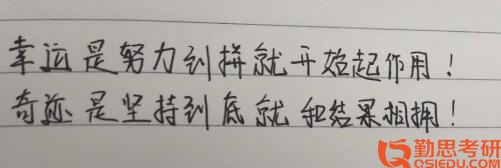 幸运是努力到拼就开始起作用！
奇迹是坚持到底就和结果相拥！
勤思考研
QSIEDU.COM